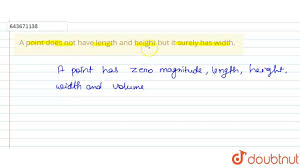 643671138
A point does not have length and height but it surely has width.
A point has zero magnitude, length, height,
width and volume
doubtnut